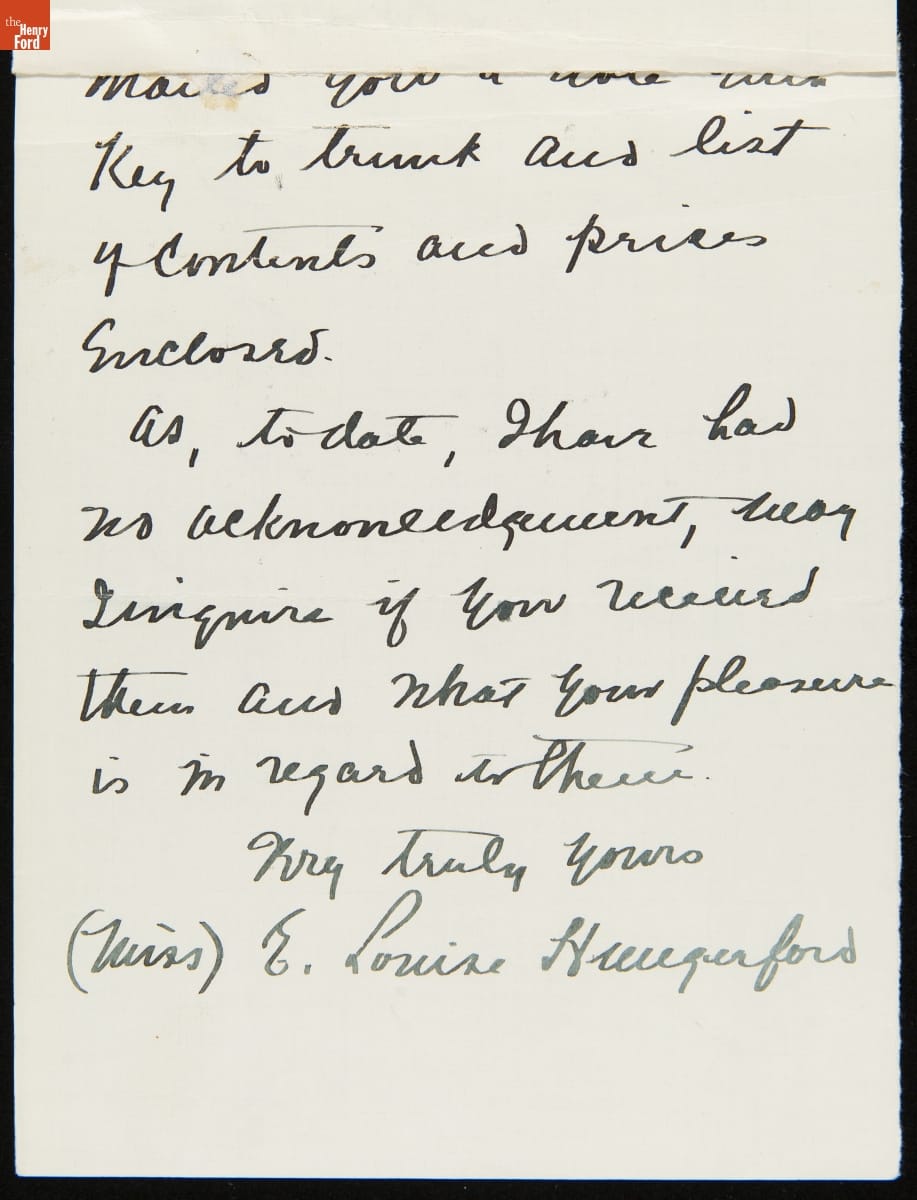 the
Henry
Ford
mailed you a note with
Key to trunk and list
of Contents and prices
Enclosed.
As, to date, I have had
no acknowledgement, may
I inquire if you received
them and what your pleasure
is in regard to them.
Very truly yours
(Miss) E. Louise Hungerford